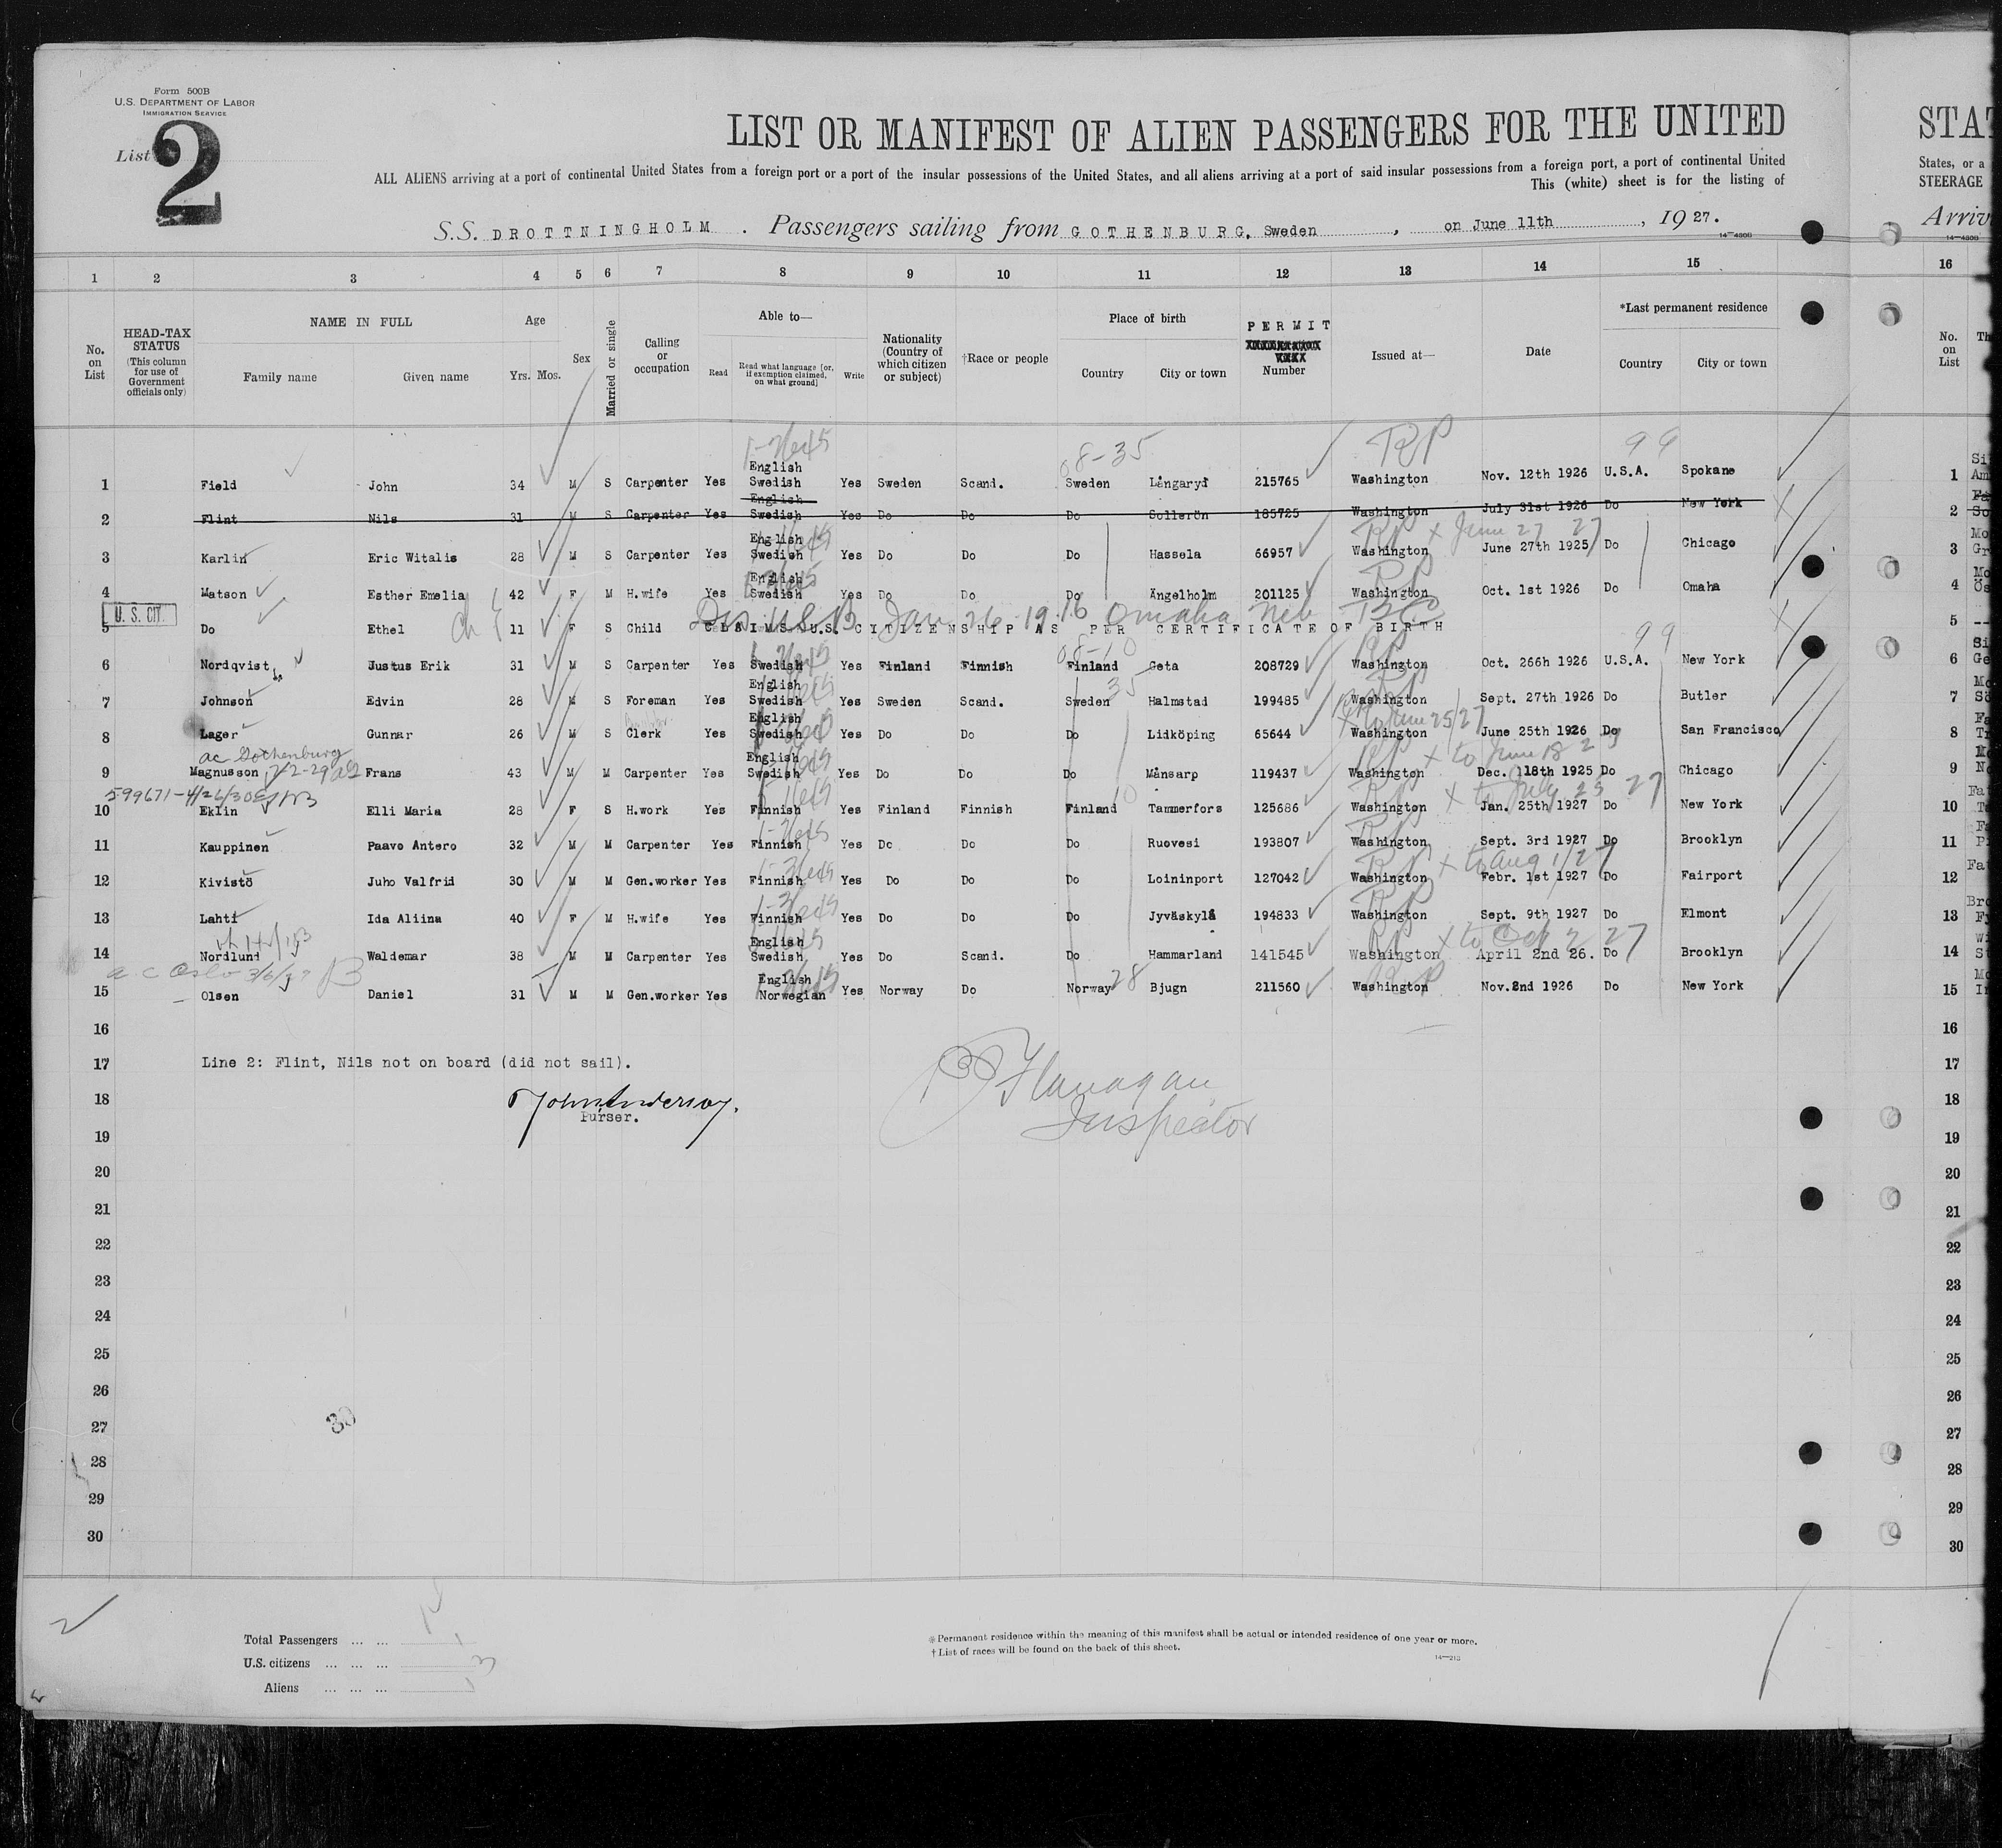 Form 500B
U.S. DEPARTMENT OF LABOR
IMMIGRATION SERVICE
List 2
LIST OR MANIFEST OF ALIEN PASSENGERS FOR THE UNITED
STAT
ALL ALIENS arriving at a port of continental United States from a foreign port or a port of the insular possessions of the United States, and all aliens arriving at a port of said insular possessions from a foreign port, a port of continental United
States, or a
This (white) sheet is for the listing of
STEERAGE
S.S. DROTTNINGHOLM . Passengers sailing from GOTHENBURG, Sweden , on June 11th , 1927.
Arriv
14-430B
14-430B
1 2 3 4 5 6 7 8 9 10 11 12 13 14 15 16
No. on List
HEAD-TAX STATUS (This column for use of Government officials only)
NAME IN FULL Family name Given name
Age Yrs. Mos.
Sex
Married or single
Calling or occupation
Able to— Read Read what language [or, if exemption claimed, on what ground] Write
Nationality (Country of which citizen or subject)
†Race or people
Place of birth Country City or town
PERMIT Number
Issued at—
Date
*Last permanent residence Country City or town
No. on List
Th
1-2645 08-35 RP 99
1 Field John 34 M S Carpenter Yes English Swedish Yes Sweden Scand. Sweden Långaryd 215765 Washington Nov. 12th 1926 U.S.A. Spokane 1
2 Flint Nils 31 M S Carpenter Yes English Swedish Yes Do Do Do Sollerön 185725 Washington July 31st 1926 Do New York 2
RP x June 27 27
3 Karlin Eric Witalis 28 M S Carpenter Yes English Swedish Yes Do Do Do Hassela 66957 Washington June 27th 1925 Do Chicago 3
RP
4 Matson Esther Emelia 42 F M H.wife Yes English Swedish Yes Do Do Do Ängelholm 201125 Washington Oct. 1st 1926 Do Omaha 4
U. S. CIT.
Jan 26 1916 Omaha Neb BC
5 Do Ethel 11 F S Child CLAIMS U.S. CITIZENSHIP AS PER CERTIFICATE OF BIRTH 5
08-10 RP 99
6 Nordqvist Justus Erik 31 M S Carpenter Yes Swedish Yes Finland Finnish Finland Geta 208729 Washington Oct. 266h 1926 U.S.A. New York 6
35 RP
7 Johnson Edvin 28 M S Foreman Yes English Swedish Yes Sweden Scand. Sweden Halmstad 199485 Washington Sept. 27th 1926 Do Butler 7
x to June 25/27
8 Lager Gunnar 26 M S Clerk Yes English Swedish Yes Do Do Do Lidköping 65644 Washington June 25th 1926 Do San Francisco 8
ac Gothenburg RP x to June 18 2
9 Magnusson Frans 43 M M Carpenter Yes English Swedish Yes Do Do Do Månsarp 119437 Washington Dec. 18th 1925 Do Chicago 9
599671-4/26/30 10 RP x to July 25 27
10 Eklin Elli Maria 28 F S H.work Yes Finnish Yes Finland Finnish Finland Tammerfors 125686 Washington Jan. 25th 1927 Do New York 10
RP
11 Kauppinen Paavo Antero 32 M M Carpenter Yes Finnish Yes Do Do Do Ruovesi 193807 Washington Sept. 3rd 1927 Do Brooklyn 11
RP x to Aug 1/27
12 Kivistö Juho Valfrid 30 M M Gen.worker Yes Finnish Yes Do Do Do Loininport 127042 Washington Febr. 1st 1927 Do Fairport 12
RP
13 Lahti Ida Aliina 40 F M H.wife Yes Finnish Yes Do Do Do Jyväskylä 194833 Washington Sept. 9th 1927 Do Elmont 13
RP x to Oct 2 27
14 Nordlund Waldemar 38 M M Carpenter Yes English Swedish Yes Do Scand. Do Hammarland 141545 Washington April 2nd 26. Do Brooklyn 14
a c Oslo 28 RP
15 Olsen Daniel 31 M M Gen.worker Yes English Norwegian Yes Norway Do Norway Bjugn 211560 Washington Nov.2nd 1926 Do New York 15
16 16
17 Line 2: Flint, Nils not on board (did not sail). 17
Flanagan
18 John Anderson. 18
Purser. Inspector
19 19
20 20
21 21
22 22
23 23
24 24
25 25
26 26
27 30 27
28 28
29 29
30 30
2
Total Passengers ... ...
U.S. citizens ... ... ...
Aliens ... ... ...
*Permanent residence within the meaning of this manifest shall be actual or intended residence of one year or more.
†List of races will be found on the back of this sheet.
14-213